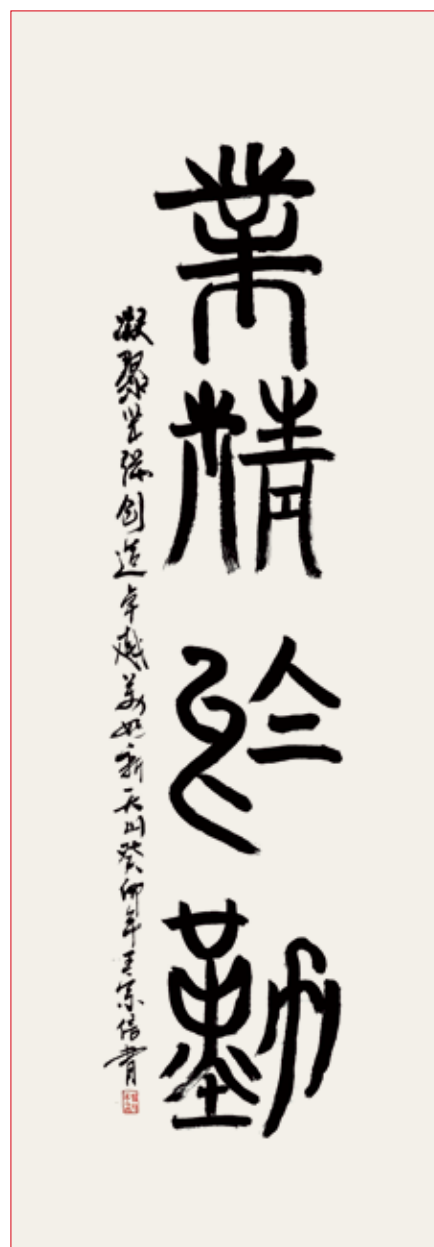 業精於勤
凝聚坚强创造卓越美如新天山癸卯年王宗信書